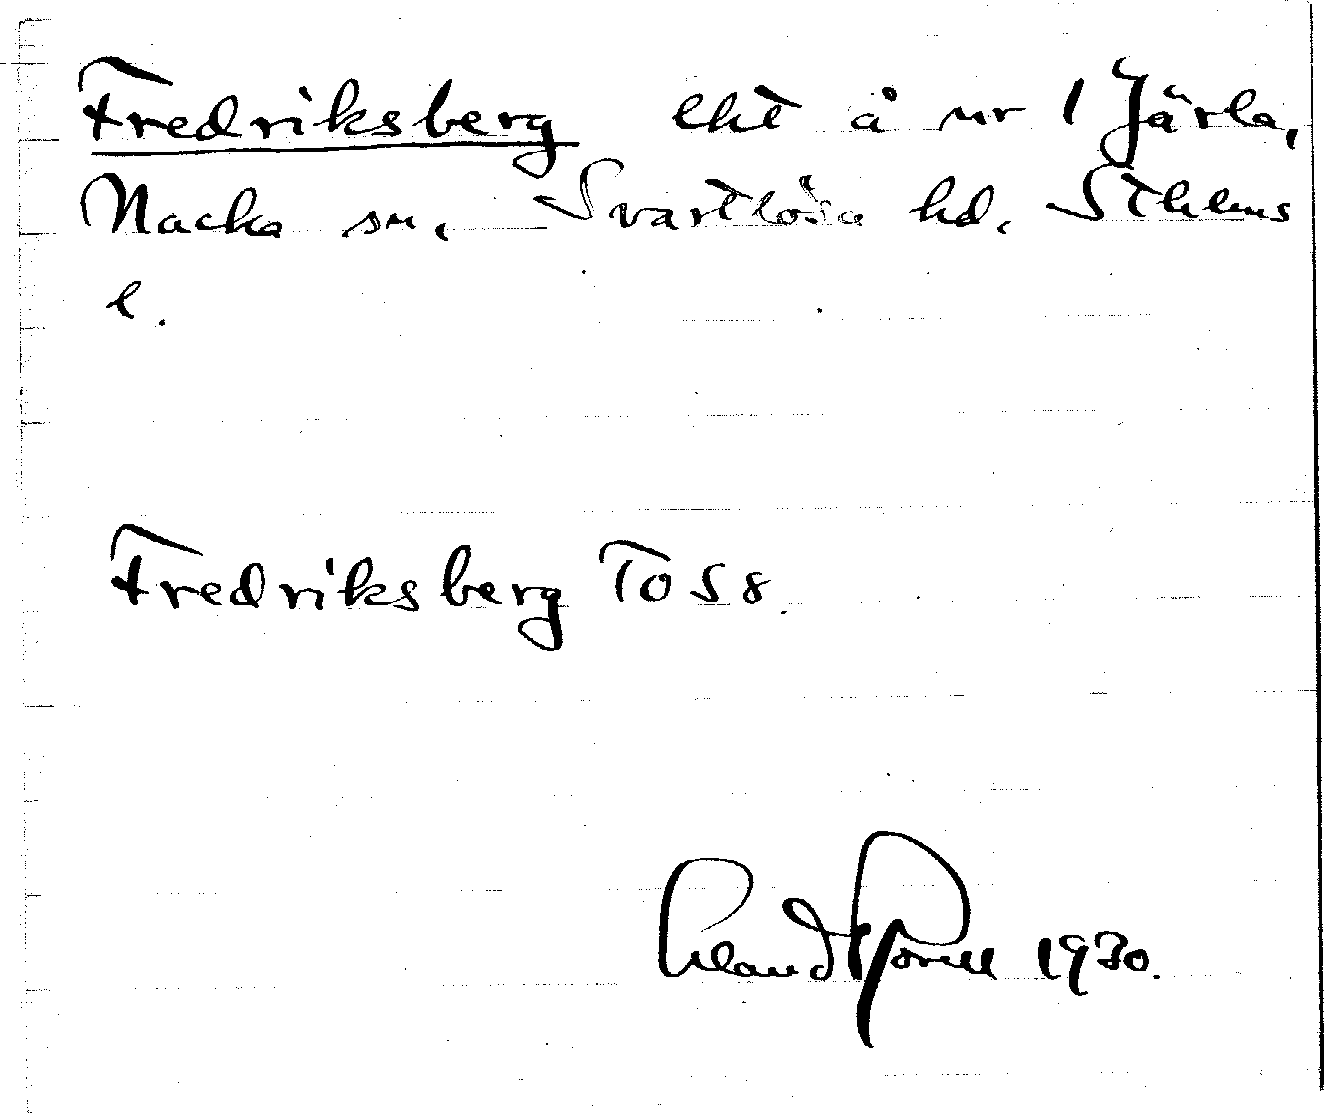 Fredriksberg lht å nr 1 Järla,
Nacka sn. Svartlösa hd. Sthlms
l.
Fredriksberg To 58.
1930.